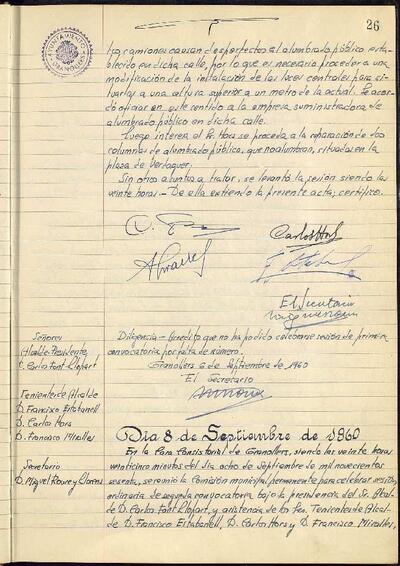 26
AYUNTAMIENTO
los camiones causan desperfectos al alumbrado público esta-
blecido en dicha calle, por lo que es necesario proceder a una
modificación de la instalación de las luces centrales para si-
tuarlas a una altura superior a un metro de la actual. Se acor-
dó oficiar en este sentido a la empresa suministradora de
alumbrado público en dicha calle.
Luego interesa el Sr. Hors se proceda a la reparación de dos
columnas de alumbrado público, que no alumbran, situadas en la
plaza de Verdaguer.
Sin otros asuntos a tratar, se levantó la sesión siendo las
veinte horas.- De ella extiendo la presente acta; certifico.
Carlos Hors
El Secretario
Señores
Alcalde-Presidente
C. Carlos Font Llopart
Tenientes de Alcalde
D. Francisco Estabanell
D. Carlos Hors
D. Francisco Miralles
Secretario
D. Miguel Roure y Llorens
Diligencia.- Acredito que no ha podido celebrarse sesión de primera
convocatoria por falta de número.
Granollers 6 de Septiembre de 1960
El Secretario
Día 8 de Septiembre de 1960
En la Casa Consistorial de Granollers, siendo las veinte horas
veinticinco minutos del día ocho de Septiembre de mil novecientos
sesenta, se reunió la Comisión municipal permanente para celebrar sesión
ordinaria de segunda convocatoria bajo la presidencia del Sr. Alcal-
de D. Carlos Font Llopart, y asistencia de los Sres. Tenientes de Alcal-
de D. Francisco Estabanell, D. Carlos Hors y D. Francisco Miralles,